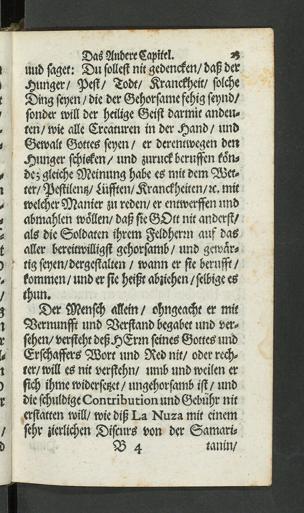 Das Andere Capitel. 23
und saget: Du sollest nit gedencken/ daß der
Hunger/ Pest/ Todt/ Kranckheit/ solche
Ding seyen/ die der Gehorsame fehig seynd/
sonder will der heilige Geist darmit andeu-
ten/ wie alle Creaturen in der Hand/ und
Gewalt Gottes seyen/ er derentwegen den
Hunger schicken/ und zuruck beruffen kön-
de; gleiche Meinung habe es mit dem Wet-
ter/ Pestilentz/ Lüfften/ Kranckheiten/ ꝛc. mit
welcher Manier zu reden/ er entwerffen und
abmahlen wöllen/ daß sie GOtt nit anderst/
als die Soldaten ihrem Feldherrn auf das
aller bereitwilligst gehorsamb/ und gewär-
tig seyen/ dergestalten/ wann er sie berufft/
kommen/ und er sie heißt abziehen/ selbige es
thun.
Der Mensch allein/ ohngeacht er mit
Vernunfft und Verstand begabet und ver-
sehen/ versteht deß HErrn seines Gottes und
Erschaffers Wort und Red nit/ oder rech-
ter/ will es nit verstehn/ umb und weilen er
sich ihme widersetzet/ ungehorsamb ist/ und
die schuldige Contribution und Gebühr nit
erstatten will/ wie diß La Nuza mit einem
sehr zierlichen Discurs von der Samari-
B 4 tanin/